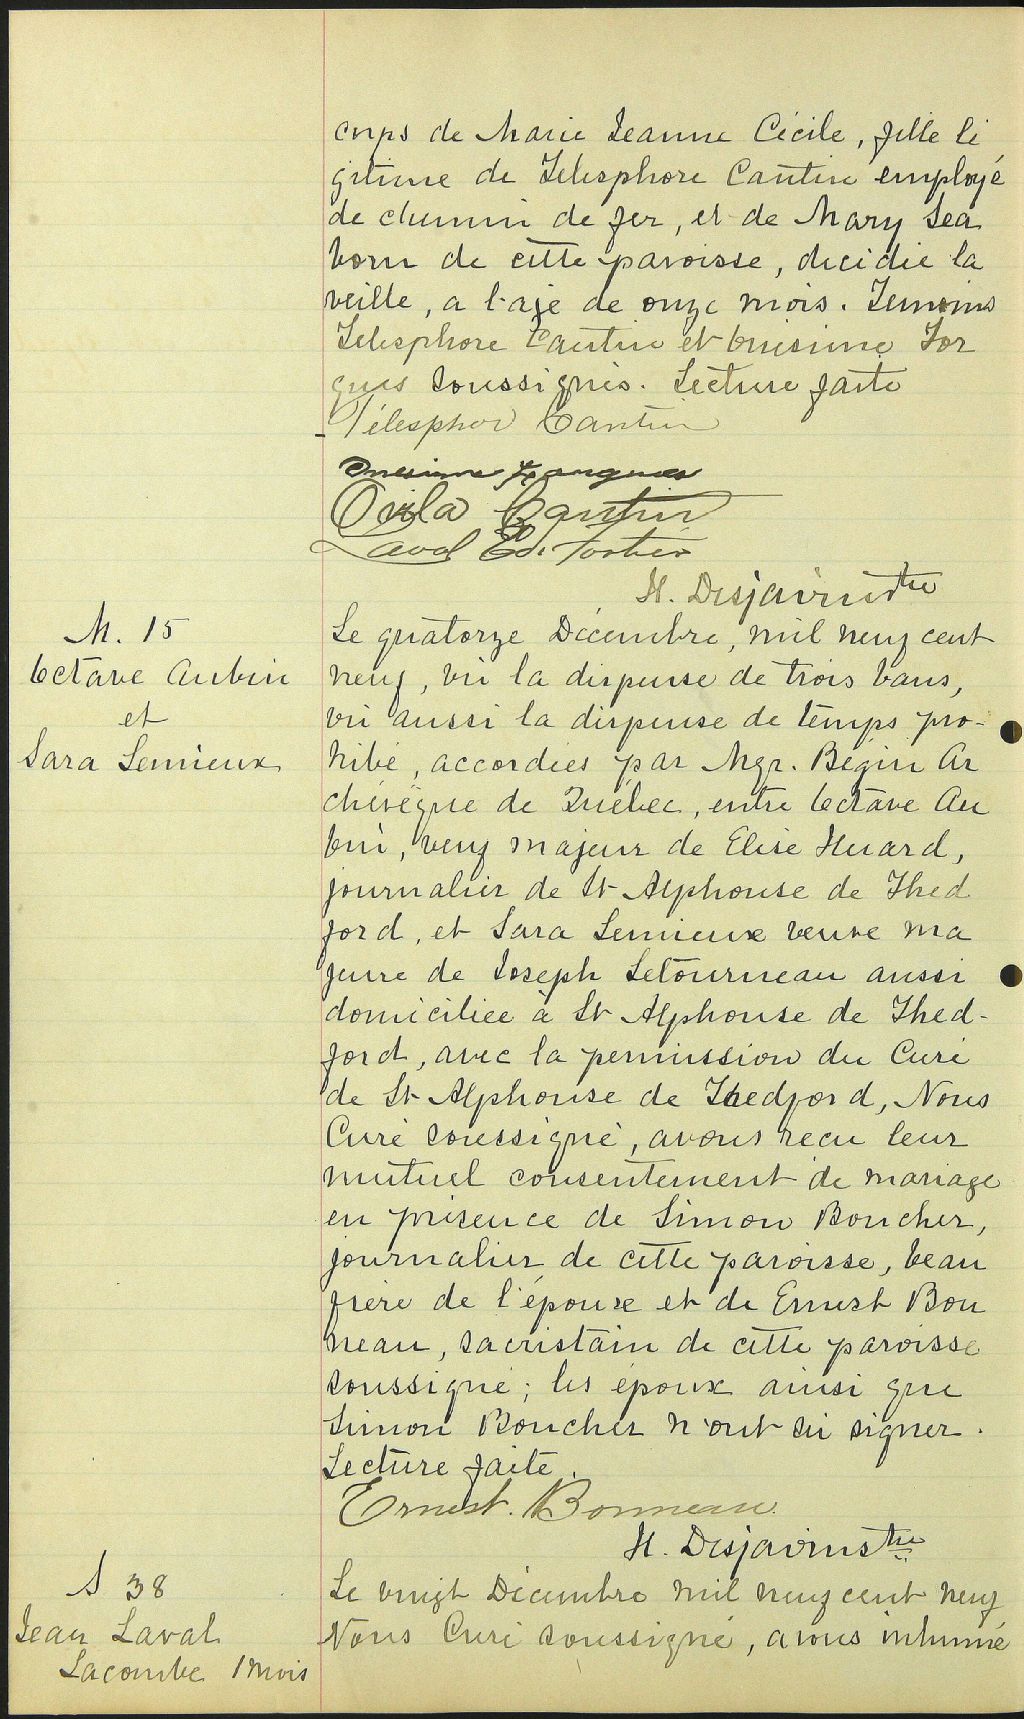 corps de Marie Jeanne Cécile, fille lé
gitime de Télesphore Cantin employé
de chemin de fer, et de Mary Sea
born de cette paroisse, décédée la
veille, a l'age de onze mois. Temoins
Télesphore Cantin et Onésime For
gues soussignés. Lecture faite
Télesphor Cantin
Onesime Forgues
Ovila Cantin
Laval Ed. Fortier
H. Desjarins ptre
M. 15
Octave Aubin
et
Sara Lemieux
Le quatorze Décembre, mil neuf cent
neuf, vû la dispense de trois bans,
vû aussi la dispense de temps pro-
hibé, accordées par Mgr. Bégin Ar
chévêque de Québec, entre Octave Au
bin, veuf majeur de Elise Huard,
journalier de St Alphonse de Thed
ford, et Sara Lemieux veuve ma
jeure de Joseph Letourneau aussi
domiciliée à St Alphonse de Thed-
ford, avec la permission du Curé
de St Alphonse de Thedford, Nous
Curé soussigné, avons recu leur
mutuel consentement de mariage
en présence de Simon Boucher,
journalier de cette paroisse, beau
frère de l'épouse et de Ernest Bon
neau, sacristain de cette paroisse
soussigné; les époux ainsi que
Simon Boucher n'ont su signer.
Lecture faite.
Ernest. Bonneau.
H. Desjarins ptre
S 38
Jean Laval
Lacombe 1 mois
Le vingt Décembre mil neuf cent neuf
Nous Curé soussigné, avons inhumé